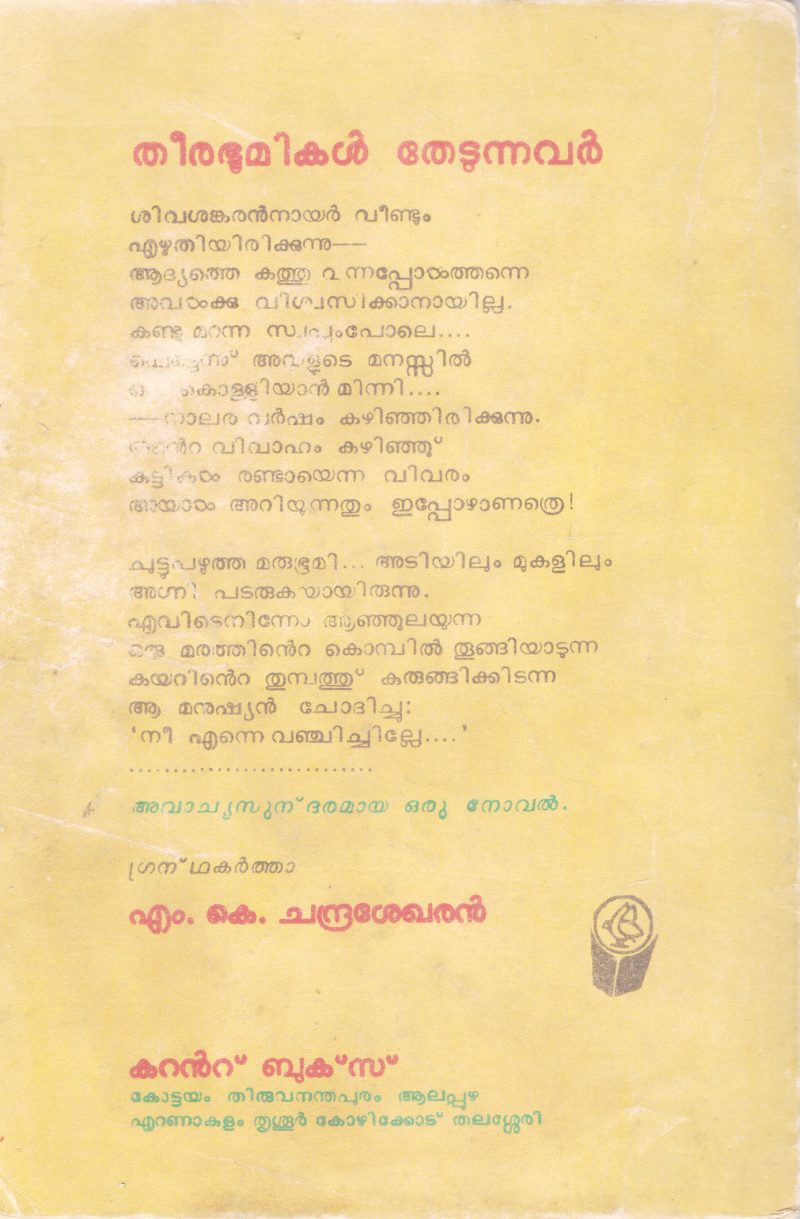 തീരഭൂമികൾ തേടുന്നവർ
ശിവശങ്കരൻനായർ വീണ്ടും
എഴുതിയിരിക്കുന്നു—
ആദ്യത്തെ കത്തു വന്നപ്പോൾത്തന്നെ
അവൾക്കു വിശ്വസിക്കാനായില്ല.
കണ്ടു മറന്ന സ്വപ്നംപോലെ....
പെട്ടെന്ന് അവളുടെ മനസ്സിൽ
കൊള്ളിയാൻ മിന്നി....
—നാലര വർഷം കഴിഞ്ഞിരിക്കുന്നു.
തൻെറ വിവാഹം കഴിഞ്ഞു്
കുട്ടികൾ രണ്ടായെന്ന വിവരം
അയാൾ അറിയുന്നതും ഇപ്പോഴാണത്രെ!
ചുട്ടുപഴുത്ത മരുഭൂമി... അടിയിലും മുകളിലും
അഗ്നി പടരുകയായിരുന്നു.
എവിടെനിന്നോ ആഞ്ഞുലയുന്ന
ഒരു മരത്തിൻെറ കൊമ്പിൽ തൂങ്ങിയാടുന്ന
കയറിൻെറ തുമ്പത്തു് കുരുങ്ങിക്കിടന്ന
ആ മനുഷ്യൻ ചോദിച്ചു:
‘നീ എന്നെ വഞ്ചിച്ചില്ലേ....’
...........................
അവാച്യസുന്ദരമായ ഒരു നോവൽ.
ഗ്രന്ഥകർത്താ
എം. കെ. ചന്ദ്രശേഖരൻ
കറൻറ് ബുക്സ്
കോട്ടയം തിരുവനന്തപുരം ആലപ്പുഴ
എറണാകുളം തൃശൂർ കോഴിക്കോട് തലശ്ശേരി